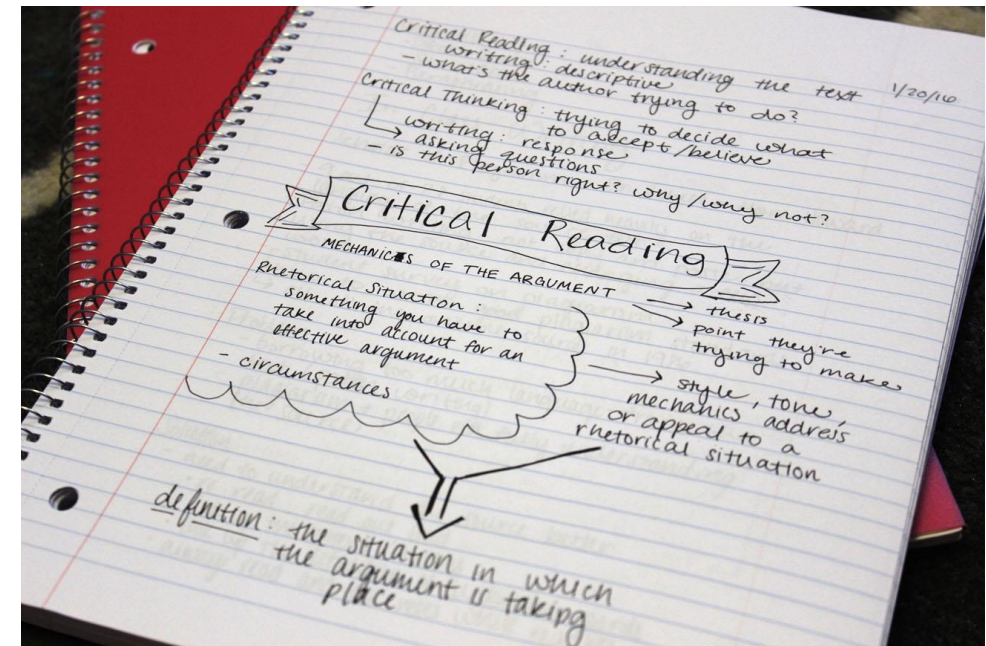 Critical Reading : understanding the text
1/20/16
writing : descriptive
- what's the author trying to do?
Critical Thinking : trying to decide what
to accept/believe
writing : response
asking questions
- is this person right? why/why not?
Critical Reading
MECHANICS OF THE ARGUMENT
thesis
point they're
trying to make
Rhetorical Situation :
something you have to
take into account for an
effective argument
- circumstances
style, tone,
mechanics address
or appeal to a
rhetorical situation
definition : the situation in which
the argument is taking
place